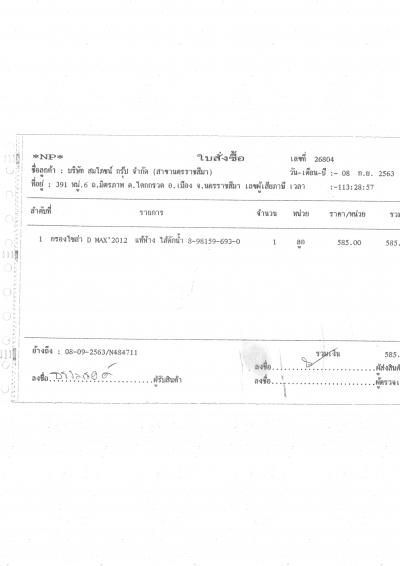 *NP* ใบสั่งซื้อ เลขที่ 26804
ชื่อลูกค้า : บริษัท สมไภชน์ กรุ๊ป จำกัด (สาขานครราชสีมา) วัน-เดือน-ปี :- 08 ก.ย. 2563
ที่อยู่ : 391 หมู่.6 ถ.มิตรภาพ ต.โคกกรวด อ.เมือง จ.นครราชสีมา เลขผู้เสียภาษี เวลา :-113:28:57
ลำดับที่ รายการ จำนวน หน่วย ราคา/หน่วย รวม
1 กรองโซล่า D MAX'2012 แท้ห้าง ไส้ดักน้ำ 8-98159-693-0 1 ลูก 585.00 585.
อ้างถึง : 08-09-2563/N484711 รวมเงิน 585.
ลงชื่อ....................ผู้ส่งสินค้
ลงชื่อ....................ผู้รับสินค้า
ลงชื่อ....................ผู้ตรวจ